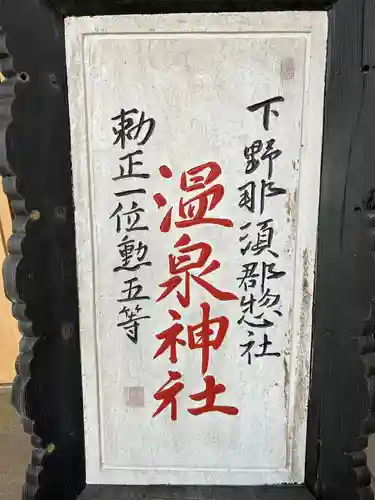 下野那須郡惣社
温泉神社
勅正一位勲五等